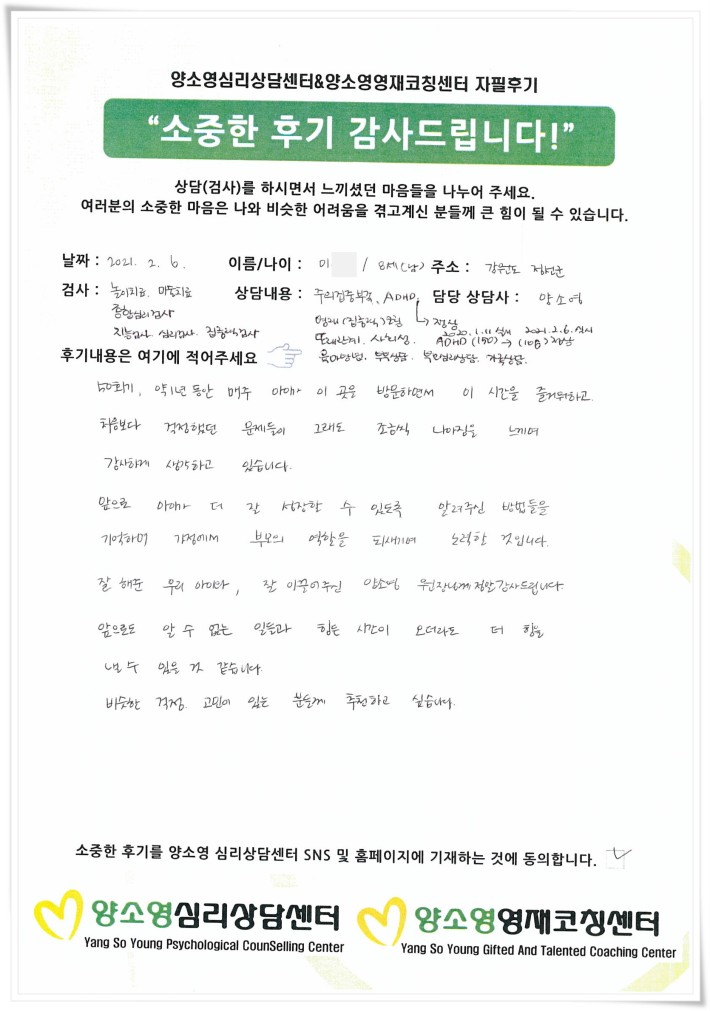 양소영심리상담센터&양소영영재코칭센터 자필후기
“소중한 후기 감사드립니다!”
상담(검사)를 하시면서 느끼셨던 마음들을 나누어 주세요.
여러분의 소중한 마음은 나와 비슷한 어려움을 겪고계신 분들께 큰 힘이 될 수 있습니다.
날짜 : 2021. 2. 6. 이름/나이 : 이 / 8세(남) 주소 : 강원도 정선군
검사 : 놀이치료. 미술치료 상담내용 : 주의집중부족, ADHD, 담당 상담사 : 양소영
종합심리검사 영재(집중력)코칭 → 정상
지능검사. 심리검사. 집중력검사 또래관계. 사회성. 2020. 1.11 실시 2021. 2. 6. 실시
ADHD (150) → (108) 정상
후기내용은 여기에 적어주세요 육아방법. 부부상담. 부모심리상담. 가족상담.
50회기, 약1년 동안 매주 아이가 이 곳을 방문하면서 이 시간을 즐거워하고.
처음보다 걱정했던 문제들이 그래도 조금씩 나아짐을 느끼며
감사하게 생각하고 있습니다.
앞으로 아이가 더 잘 성장할 수 있도록 알려주신 방법들을
기억하며 가정에서 부모의 역할을 되새기며 노력할 것입니다.
잘 해준 우리 아이와, 잘 이끌어주신 양소영 원장님께 정말 감사드립니다.
앞으로도 알 수 없는 일들과 힘든 시간이 오더라도 더 힘을
낼 수 있을 것 같습니다.
비슷한 걱정. 고민이 있는 분들께 추천하고 싶습니다.
소중한 후기를 양소영 심리상담센터 SNS 및 홈페이지에 기재하는 것에 동의합니다.
양소영심리상담센터 양소영영재코칭센터
Yang So Young Psychological CounSelling Center Yang So Young Gifted And Talented Coaching Center